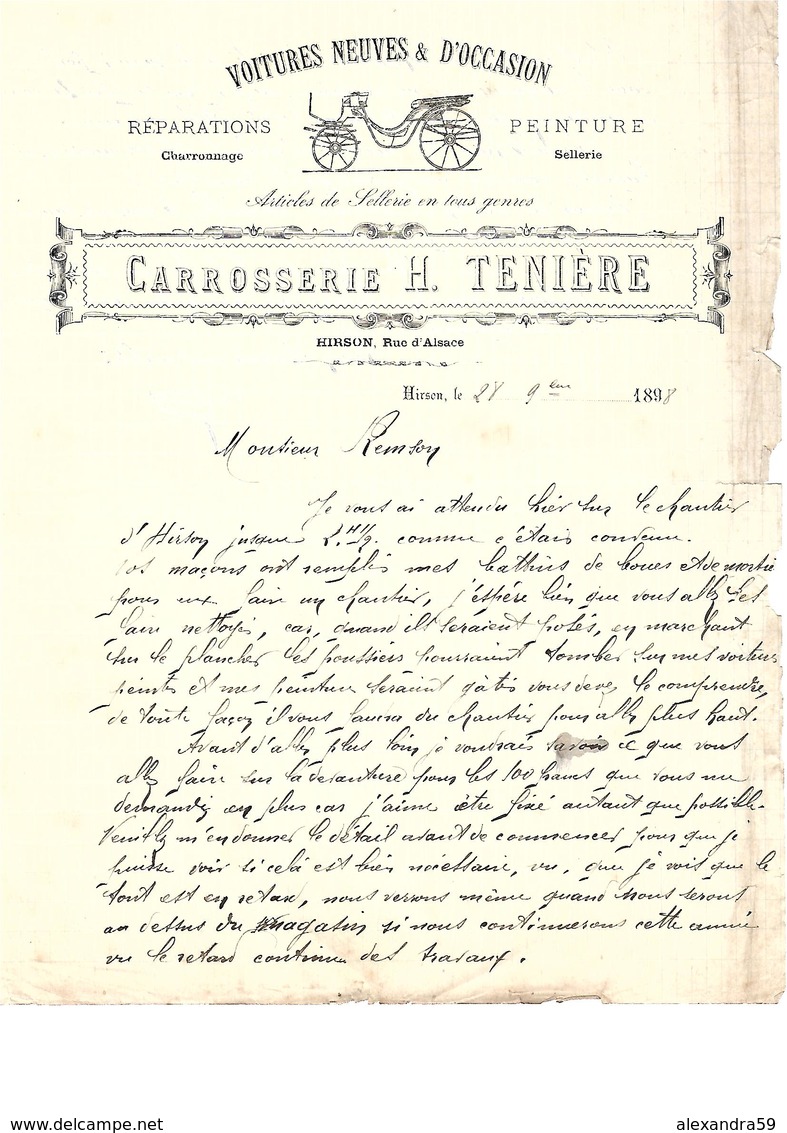 VOITURES NEUVES & D'OCCASION
RÉPARATIONS
PEINTURE
Charronnage
Sellerie
Articles de Sellerie en tous genres
CARROSSERIE H. TENIÈRE
HIRSON, Rue d'Alsace
Hirson, le 28 9bre 1898
Monsieur Remson
Je vous ai attendu hier sur le chantier
d'Hirson jusque 2H 1/2 comme c'étais convenu.
Vos maçons ont remplis mes battins de boues et de mortie
pour eux faire un chantier, j'espére bien que vous allez les
faire nettoyés, car, quand ils seraient posés, en marchant
sur le plancher les poussiers pourraient tomber sur mes voitures
peintes et mes peinture seraient gâtés vous devez le comprendre,
de toute façon il vous faudra du chantier pour allez plus haut.
Avant d'allez plus loin je voudrais savoir ce que vous
allez faire sur la devanture pour les 100 francs que vous me
demandiez en plus car j'aime être fixé autant que possible.
Veuillez m'en donner le détail avant de commencer pour que je
puisse voir si celà est bien nécessaire, vu, que je vois que le
tout est en retard, nous verrons même quand nous serons
au dessus du magasin si nous continuerons cette année
vu le retard continu des travaux.
www.delcampe.net
alexandra59